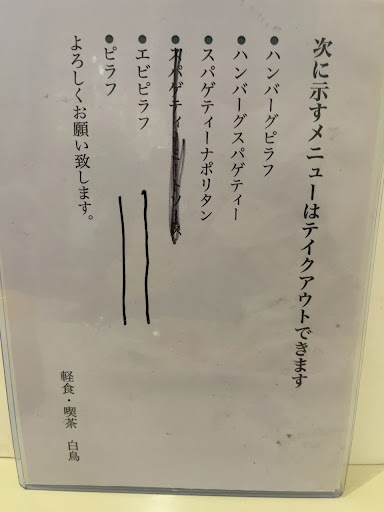 次に示すメニューはテイクアウトできます
●ハンバーグピラフ
●ハンバーグスパゲティー
●スパゲティーナポリタン
●スパゲティーミートソース
●エビピラフ
●ピラフ
よろしくお願い致します。
軽食・喫茶 白鳥